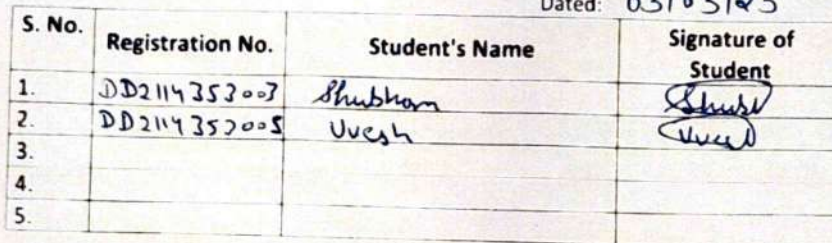 Dated: 03/05/23
S. No. Registration No. Student's Name Signature of Student
1. DD2114353003 Shubham Shubh
2. DD2114353005 Uvesh Uvesh
3.
4.
5.